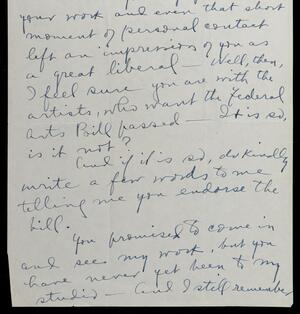 your work and even that short
moment of personal contact
left an impression of you as
a great liberal — Well, then,
I feel sure you are with the
artists, who want the Federal
Arts Bill passed — It is so,
is it not?
And if it is so, do kindly
write a few words to me
telling me you endorse the
bill.
You promised to come in
and see my work, but you
have never yet been to my
studio — And I still remember